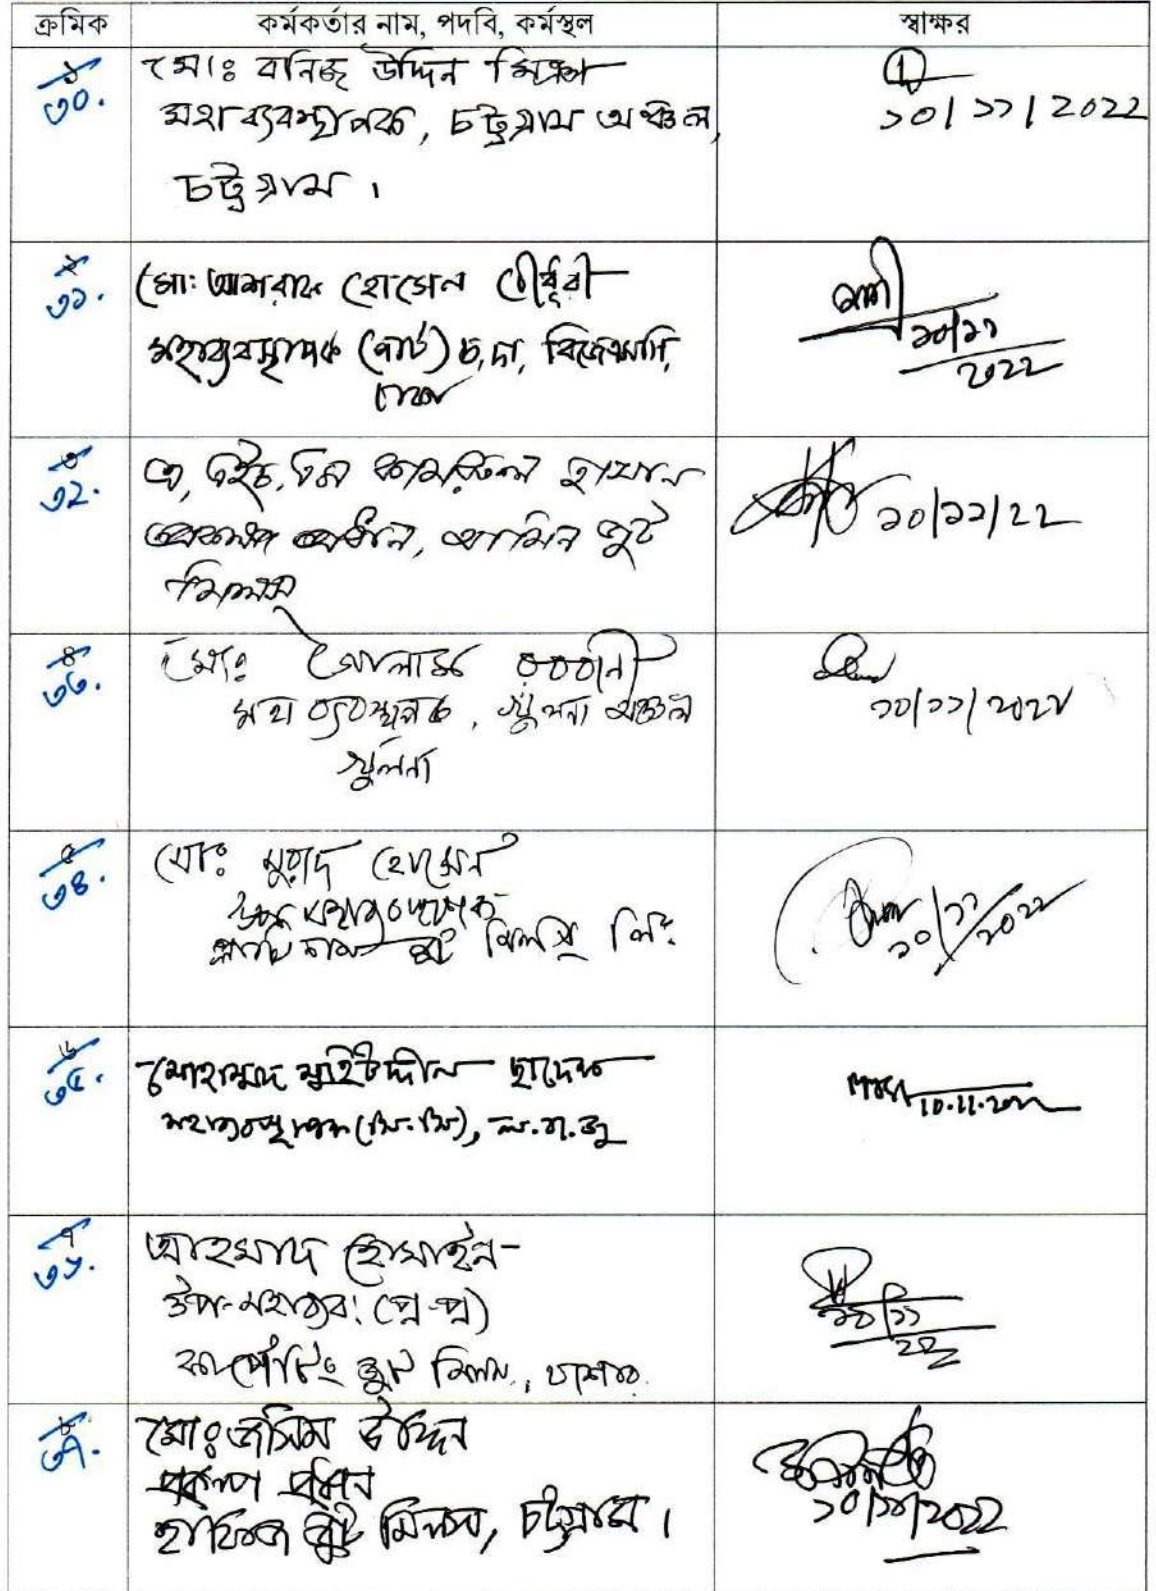 ক্রমিক কর্মকর্তার নাম, পদবি, কর্মস্থল স্বাক্ষর
১
৩০. মোঃ বনিজ উদ্দিন মিঞা
মহাব্যবস্থাপক, চট্টগ্রাম অঞ্চল,
চট্টগ্রাম।
১০/১১/2022
২
৩১. মো: আশরাফ হোসেন চৌধুরী
মহাব্যবস্থাপক (পাট) চ, দা, বিজেএমসি,
ঢাকা
১০/১১
২০২২
৩
৩২. এ, এইচ, এম কামরুল হাসান
প্রকল্প প্রধান, আমিন জুট
মিলস্
১০/১১/২২
৪
৩৩. মোঃ গোলাম রব্বানী
মহাব্যবস্থাপক, খুলনা অঞ্চল
খুলনা
১০/১১/২০২২
৫
৩৪. মোঃ মুরাদ হোসেন
উপ মহাব্যবস্থাপক
প্লাটিনাম জুট মিলস্ লিঃ
১০/১১/২০২২
৬
৩৫. মোহাম্মদ মুহিউদ্দীন ছাদেক
মহাব্যবস্থাপক
10.11.2022
৭
৩৬. আহমাদ হোসাইন
উপ-মহাব্যব:
কার্পেটিং জুট মিলস, যশোর.
১০/১১
২২
৮
৩৭. মোঃ জসিম উদ্দিন
প্রকল্প প্রধান
হাফিজ জুট মিলস, চট্টগ্রাম।
১০/১১/২০২২